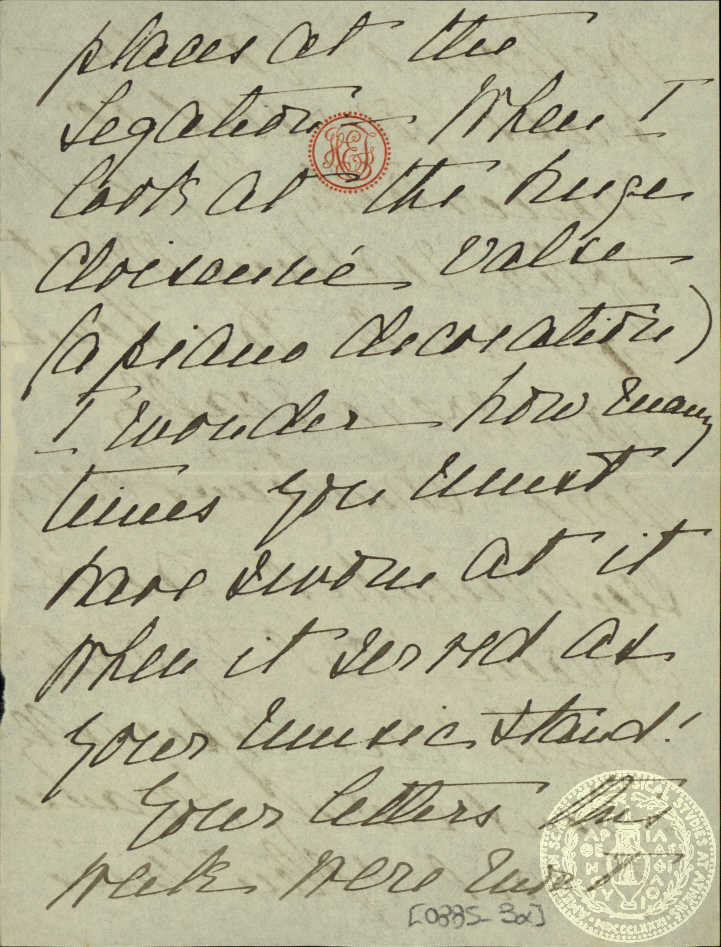 places at the
Legation – When I
look at the huge
cloisenné valse
(a piano decoration)
I wonder how many
times you must
have swore at it
when it served as
your music stand!
Your letters this
week were must
[0885-3α]